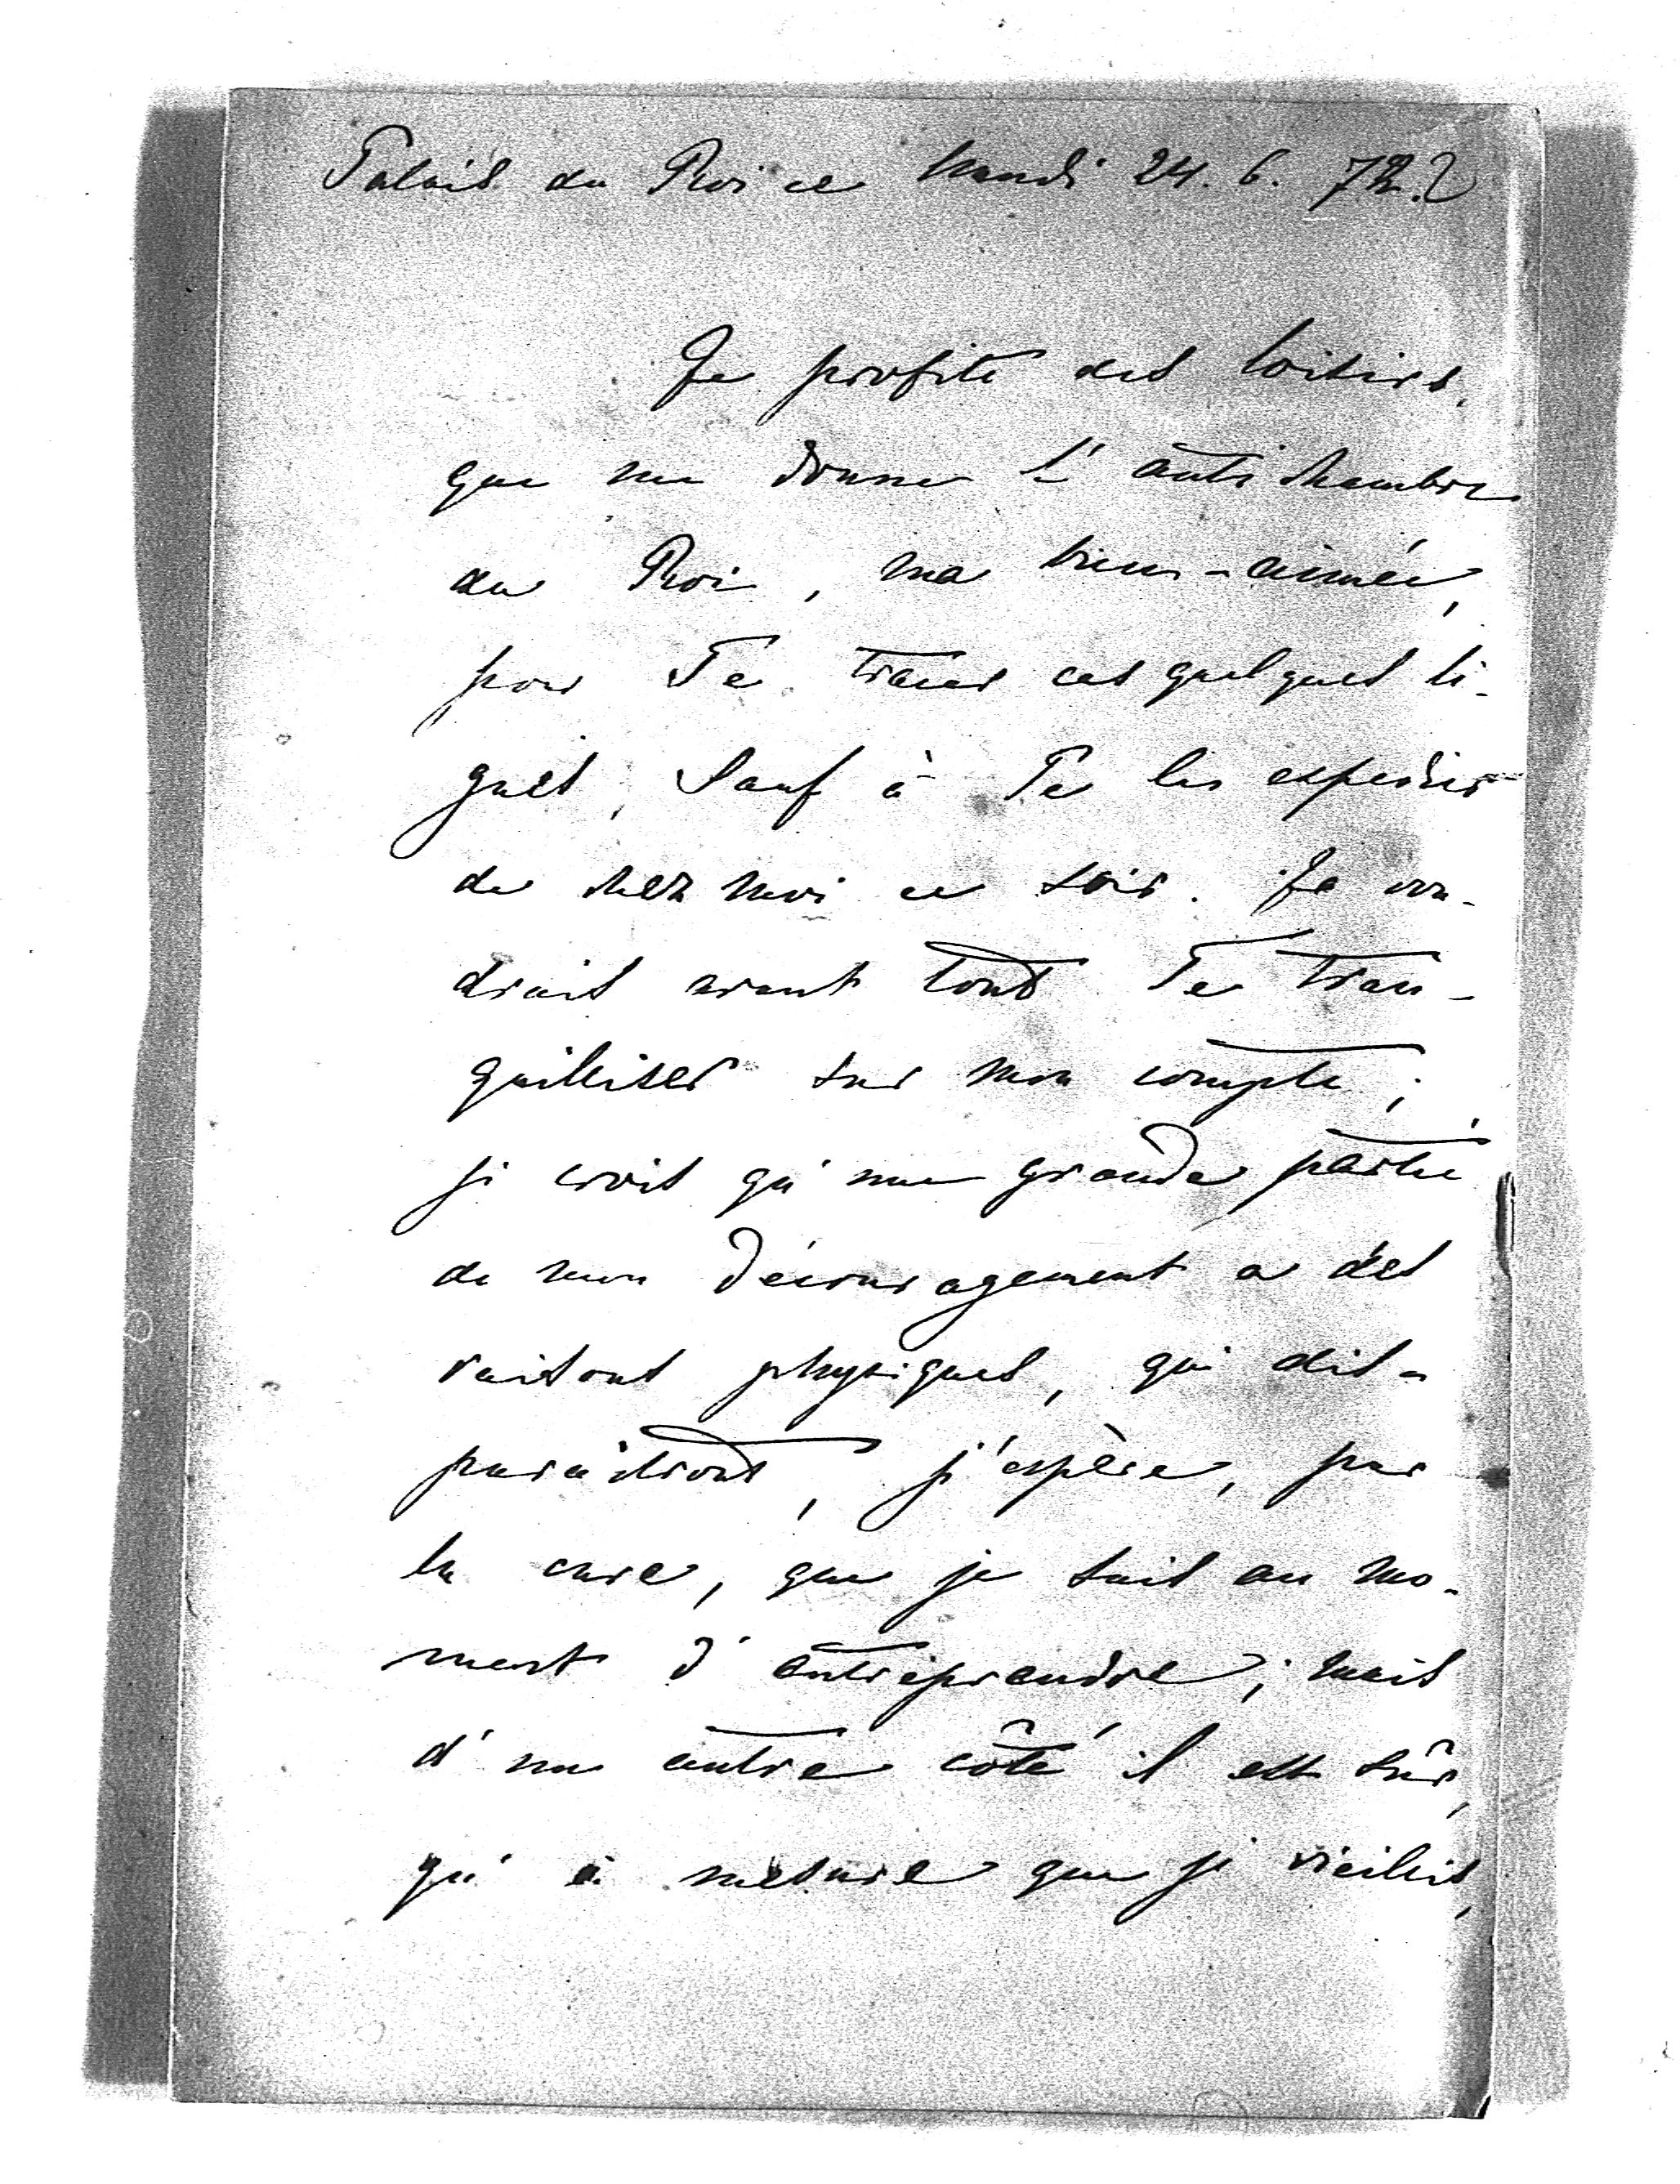 Palais du Roi ce Mardi 24. 6. 72.2
Je profite des loisirs,
que me donne l'antichambre
du Roi, ma bien-aimée,
pour Te tracer ces quelques li-
gnes, sauf à Te les expédier
de chez moi ce soir. Je vou-
drais avant tout Te tran-
quilliser sur mon compte;
je crois qu'une grande partie
de mon découragement a des
raisons physiques, qui dis-
paraîtront, j'espère, par
la cure, que je suis au mo-
ment d'entreprendre; mais
d'un autre côté il est sûr,
qu'à mesure que je vieillis,